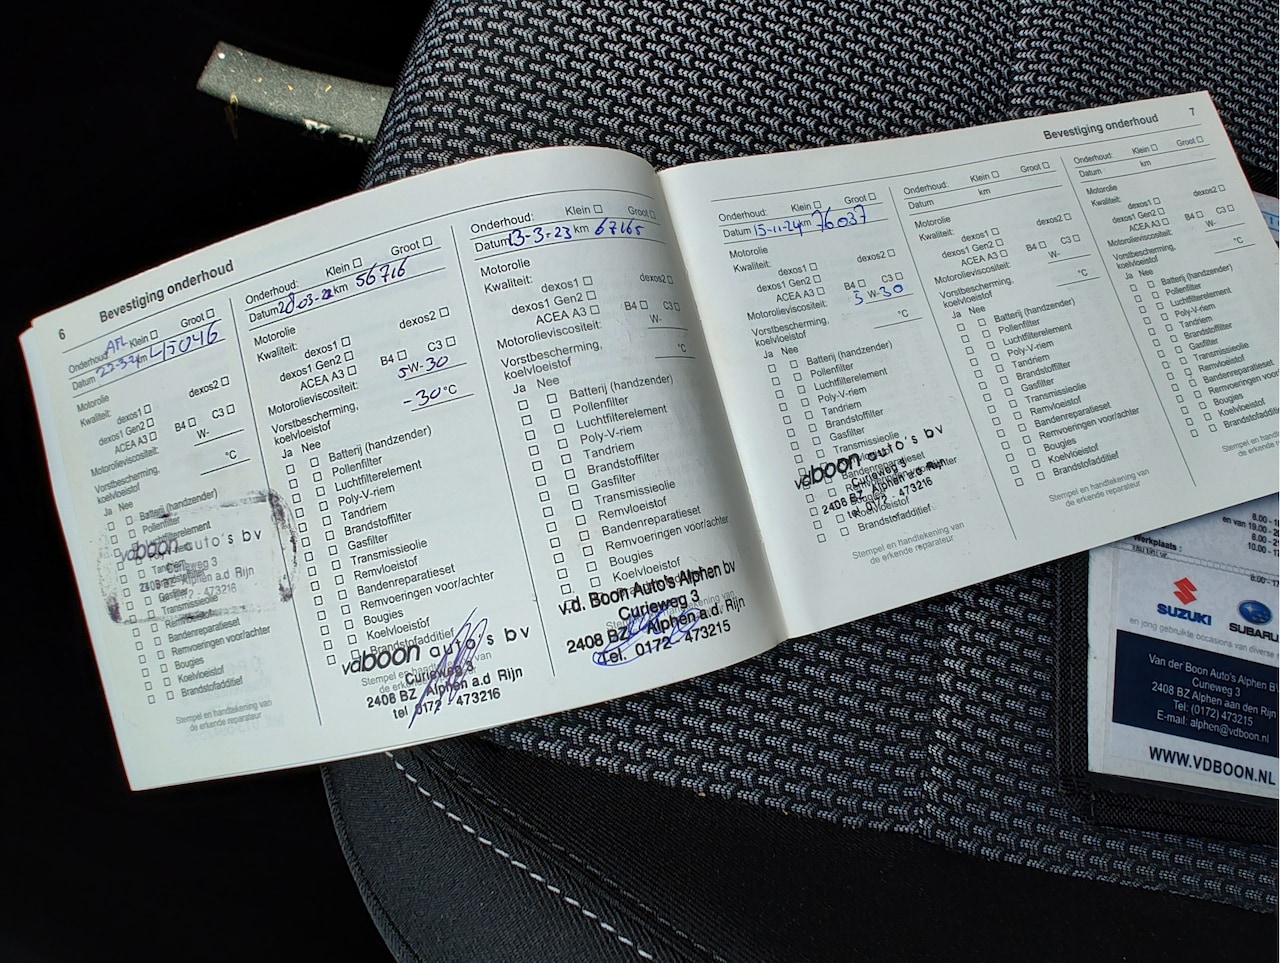 6 Bevestiging onderhoud
Onderhoud: AFL Klein Groot
Datum km 45046
Motorolie
Kwaliteit: dexos1 dexos2
dexos1 Gen2
ACEA A3 B4 C3
Motorolieviscositeit: W-
Vorstbescherming, °C
koelvloeistof
Ja Nee
Batterij (handzender)
Pollenfilter
Luchtfilterelement
Poly-V-riem
Tandriem
Brandstoffilter
Gasfilter
Transmissieolie
Remvloeistof
Bandenreparatieset
Remvoeringen voor/achter
Bougies
Koelvloeistof
Brandstofadditief
vdboon auto's bv
Curieweg 3
2408 BZ Alphen a.d Rijn
tel 0172 - 473216
Stempel en handtekening van
de erkende reparateur
Onderhoud: Klein Groot
Datum 28-03-22 km 56716
Motorolie
Kwaliteit: dexos1 dexos2
dexos1 Gen2
ACEA A3 B4 C3
Motorolieviscositeit: 5W-30
Vorstbescherming, -30°C
koelvloeistof
Ja Nee
Batterij (handzender)
Pollenfilter
Luchtfilterelement
Poly-V-riem
Tandriem
Brandstoffilter
Gasfilter
Transmissieolie
Remvloeistof
Bandenreparatieset
Remvoeringen voor/achter
Bougies
Koelvloeistof
Brandstofadditief
vdboon auto's bv
Curieweg 3
2408 BZ Alphen a.d Rijn
tel 0172 - 473216
Stempel en handtekening van
de erkende reparateur
Onderhoud: Klein Groot
Datum 13-3-23 km 67165
Motorolie
Kwaliteit: dexos1 dexos2
dexos1 Gen2
ACEA A3 B4 C3
Motorolieviscositeit: W-
Vorstbescherming, °C
koelvloeistof
Ja Nee
Batterij (handzender)
Pollenfilter
Luchtfilterelement
Poly-V-riem
Tandriem
Brandstoffilter
Gasfilter
Transmissieolie
Remvloeistof
Bandenreparatieset
Remvoeringen voor/achter
Bougies
Koelvloeistof
v.d. Boon Auto's Alphen bv
Curieweg 3
2408 BZ Alphen a.d. Rijn
Tel. 0172 - 473215
Bevestiging onderhoud 7
Onderhoud: Klein Groot
Datum 15-11-24 km 76037
Motorolie
Kwaliteit: dexos1 dexos2
dexos1 Gen2
ACEA A3 B4 C3
Motorolieviscositeit: 5 W-30
Vorstbescherming, °C
koelvloeistof
Ja Nee
Batterij (handzender)
Pollenfilter
Luchtfilterelement
Poly-V-riem
Tandriem
Brandstoffilter
Gasfilter
Transmissieolie
Bandenreparatieset
Koelvloeistof
Brandstofadditief
vdboon auto's bv
Curieweg 3
2408 BZ Alphen a.d Rijn
tel 0172 - 473216
Stempel en handtekening van
de erkende reparateur
Onderhoud: Klein Groot
Datum km
Motorolie
Kwaliteit: dexos1 dexos2
dexos1 Gen2
ACEA A3 B4 C3
Motorolieviscositeit: W-
Vorstbescherming, °C
koelvloeistof
Ja Nee
Batterij (handzender)
Pollenfilter
Luchtfilterelement
Poly-V-riem
Tandriem
Brandstoffilter
Gasfilter
Transmissieolie
Remvloeistof
Bandenreparatieset
Remvoeringen voor/achter
Bougies
Koelvloeistof
Brandstofadditief
Stempel en handtekening van
de erkende reparateur
Onderhoud: Klein Groot
Datum km
Motorolie
Kwaliteit: dexos1 dexos2
dexos1 Gen2
ACEA A3 B4 C3
Motorolieviscositeit: W-
Vorstbescherming, °C
koelvloeistof
Ja Nee
Batterij (handzender)
Pollenfilter
Luchtfilterelement
Poly-V-riem
Tandriem
Brandstoffilter
Gasfilter
Transmissieolie
Remvloeistof
Bandenreparatieset
Remvoeringen voor
Bougies
Koelvloeistof
Brandstofadditief
Stempel en handteken
de erkende
en van 19.00 - 2
Werkplaats :
SUZUKI SUBARU
en jong gebruikte occasions van diverse
Van der Boon Auto's Alphen B
Curieweg 3
2408 BZ Alphen aan den Rijn
Tel: (0172) 473215
E-mail: alphen@vdboon.nl
WWW.VDBOON.NL